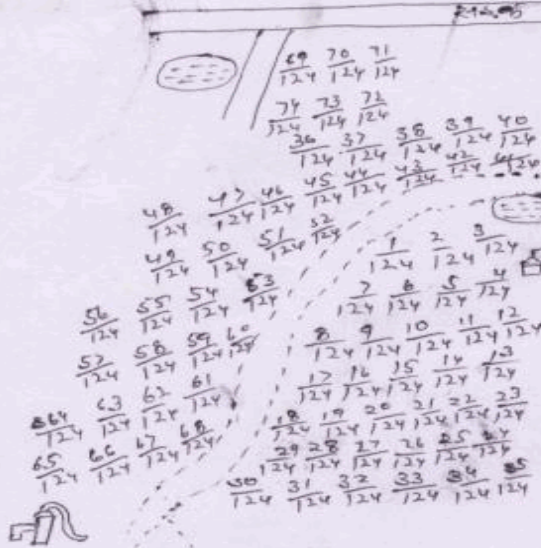 69/124 70/124 71/124
74/124 73/124 72/124
36/124 37/124 38/124 39/124 40/124
48/124 47/124 46/124 45/124 44/124 43/124 42/124 41/124
49/124 50/124 51/124 52/124
1/124 2/124 3/124
56/124 55/124 54/124 53/124
7/124 6/124 5/124 4/124
57/124 58/124 59/124 60/124
8/124 9/124 10/124 11/124 12/124
64/124 63/124 62/124 61/124
17/124 16/124 15/124 14/124 13/124
65/124 66/124 67/124 68/124
18/124 19/124 20/124 21/124 22/124 23/124
29/124 28/124 27/124 26/124 25/124 24/124
30/124 31/124 32/124 33/124 34/124 35/124